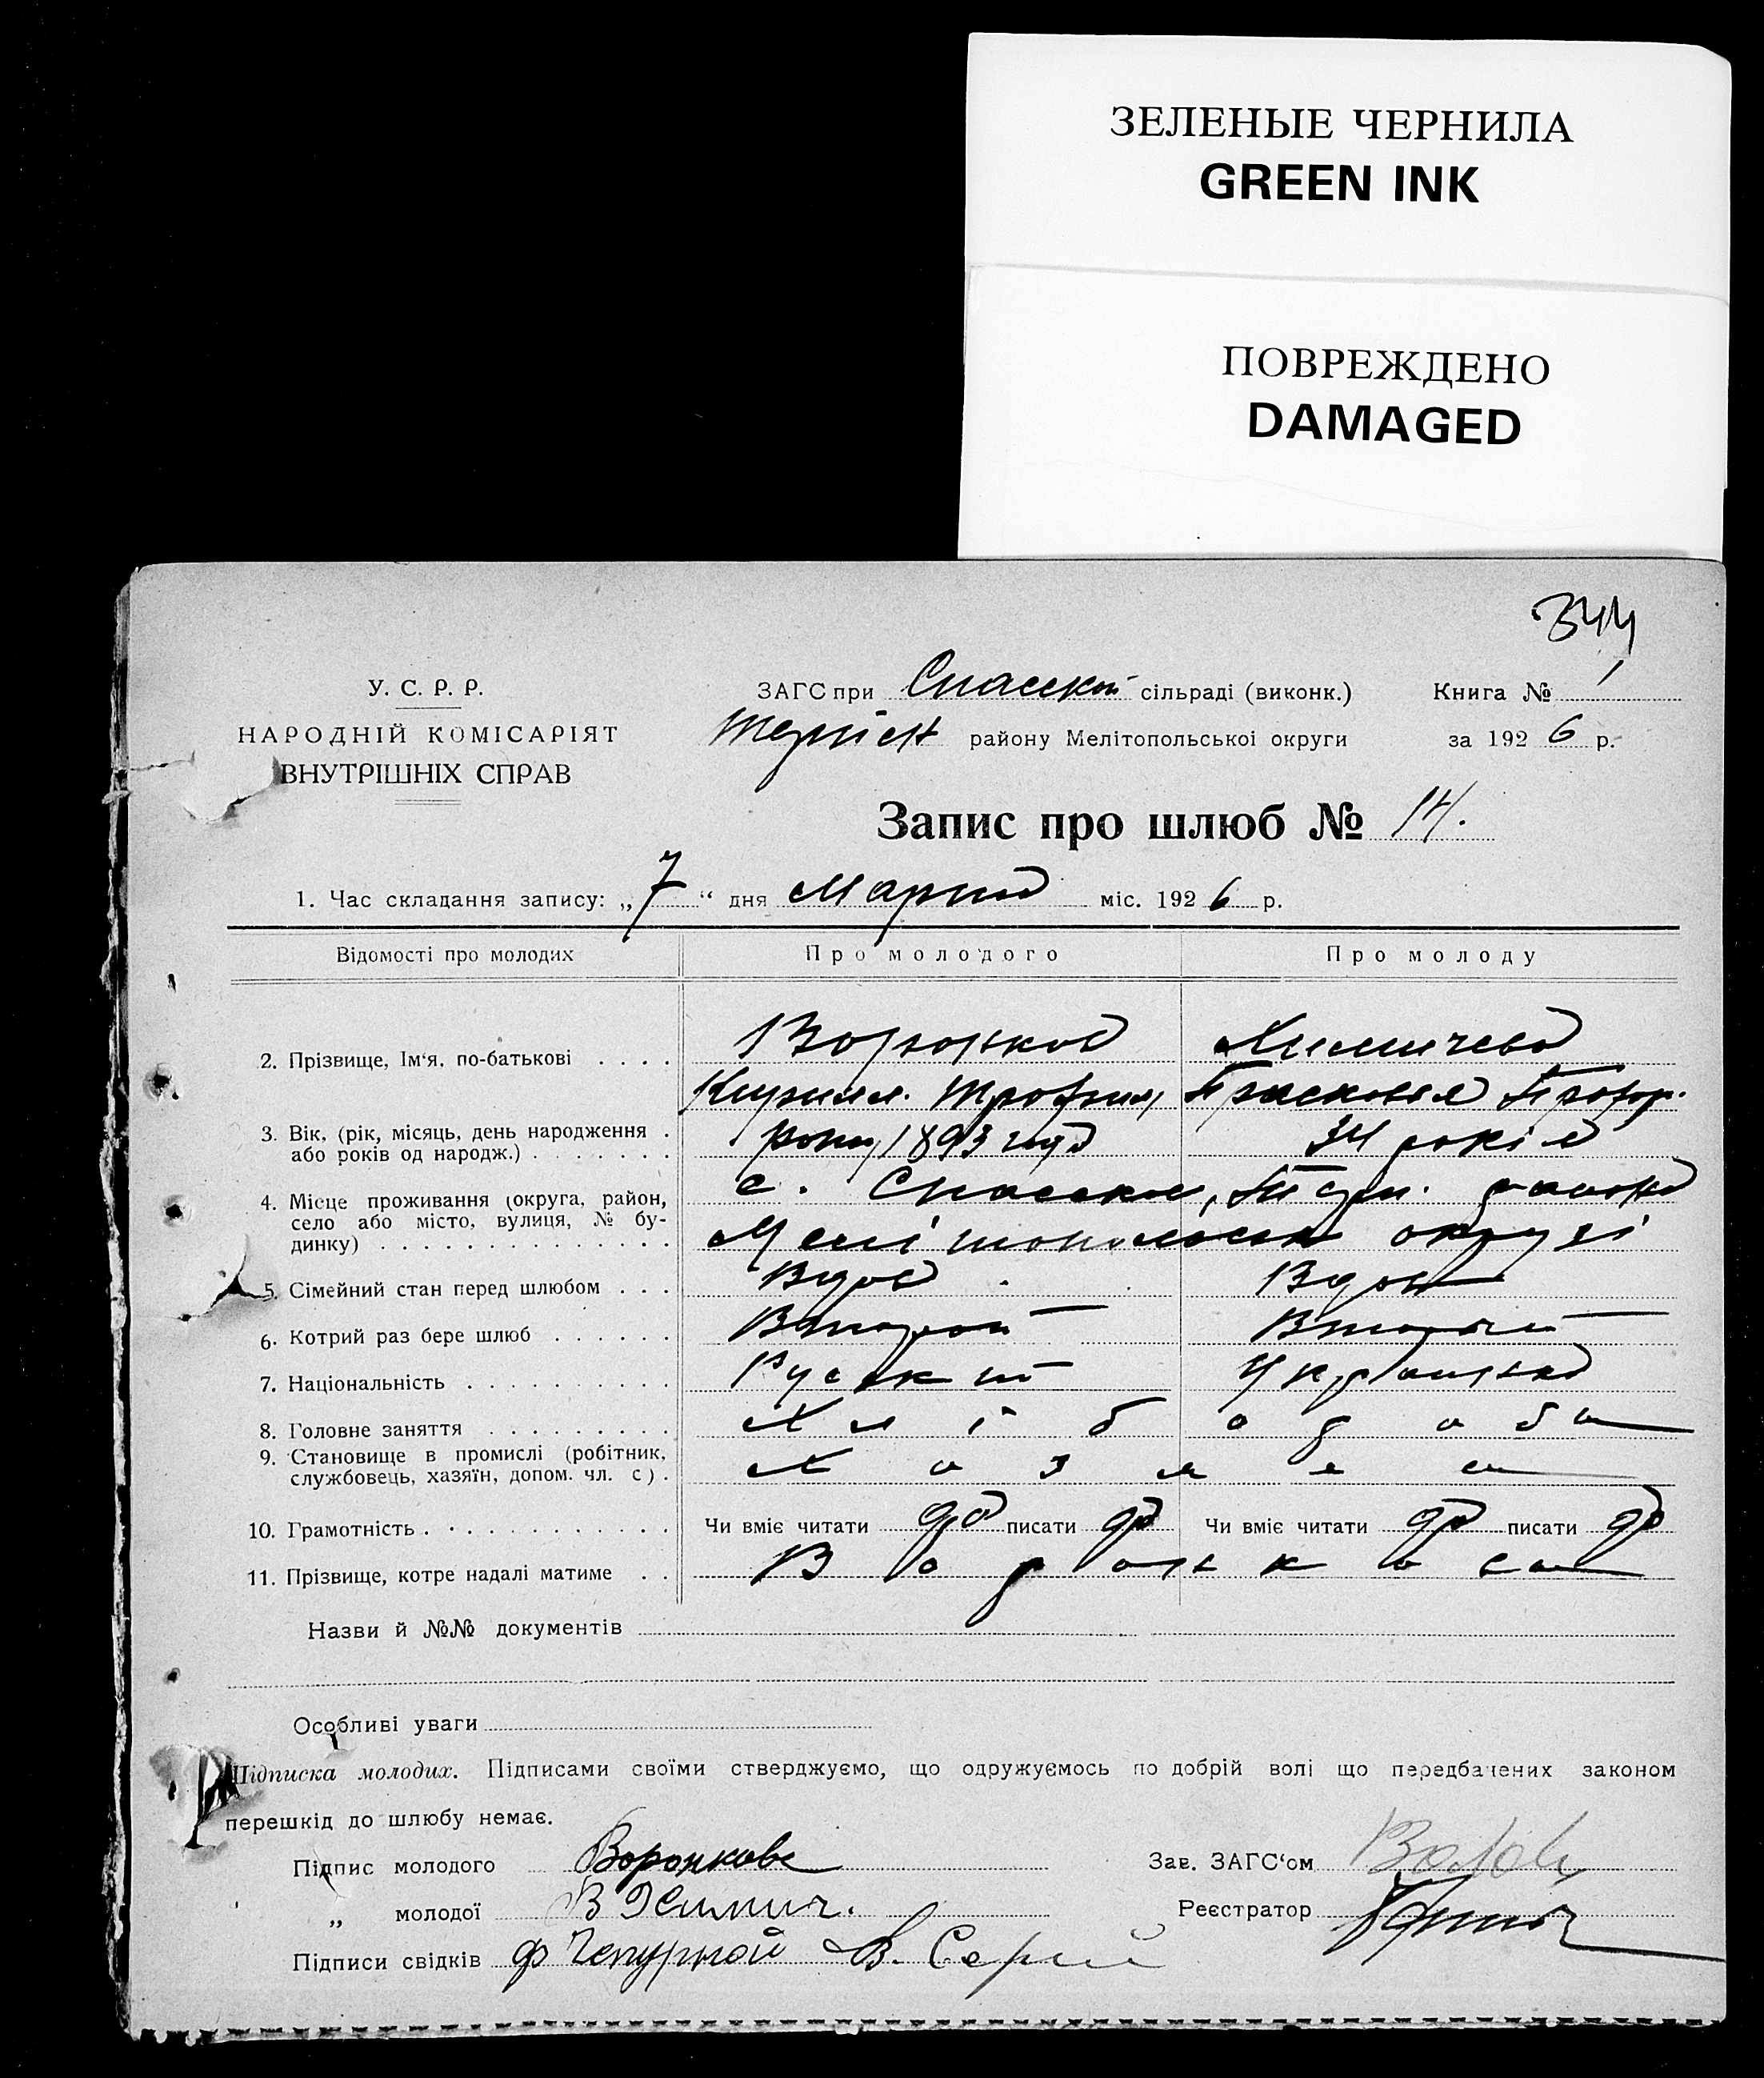 ЗЕЛЕНЫЕ ЧЕРНИЛА
GREEN INK
ПОВРЕЖДЕНО
DAMAGED
344
У. С. Р. Р.
НАРОДНІЙ КОМІСАРІЯТ
ВНУТРІШНІХ СПРАВ
ЗАГС при Спасской сільраді (виконк.)
Книга № 1
району Мелітопольскоі округи
за 1926 р.
Запис про шлюб № 14.
1. Час складання запису: „7“ дня Марта міс. 1926 р.
Відомості про молодих
Про молодого
Про молоду
2. Прізвище, Ім'я, по-батькові . . . .
Воронков
Химичева
Кирилл. Трофим,
Прасковья Прохор.
3. Вік, (рік, місяць, день народження .
або років од народж.) . . . . . . .
1893 года
34 років
4. Місце проживання (округа, район,
село або місто, вулиця, № бу-
динку) . . . . . . . . . . . . . .
с. Спасское, района
Мелітопольськ округі
5. Сімейний стан перед шлюбом . . .
Вдов
Вдов
6. Котрий раз бере шлюб . . . . . .
Второй
Вторый
7. Національність . . . . . . . . . .
Руский
Украинка
8. Головне заняття . . . . . . . . .
Хлібороба
9. Становище в промислі (робітник,
службовець, хазяїн, допом. чл. с) .
Хозяеа
10. Грамотність . . . . . . . . . . . .
Чи вміє читати да писати да
Чи вміє читати да писати да
11. Прізвище, котре надалі матиме . .
Воронкова
Назви й №№ документів
Особливі уваги
Підписка молодих. Підписами своїми стверджуємо, що одружуємось по добрій волі що передбачених законом
перешкід до шлюбу немає.
Підпис молодого Воронкове
Зав. ЗАГС'ом
„ молодої В Химич.
Реєстратор
Підписи свідків Ф Чепурной В. Серий